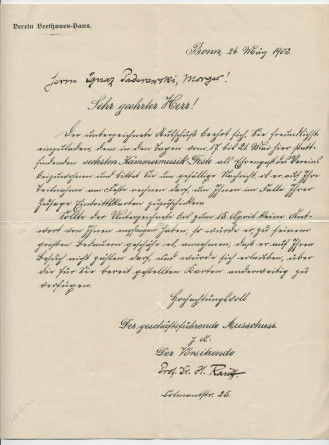 Verein Beethoven-Haus.
Bonn, 26. März 1903.
Herrn Ignaz Paderewski, Morges!
Sehr geehrter Herr!
Der unterzeichnete Ausschuß beehrt sich, Sie freundlichst
einzuladen, dem in den Tagen vom 17. bis 21. Mai hier statt-
findenden sechsten Kammermusik-Fest als Ehrengast des Vereins
beizuwohnen und bittet Sie um gefällige Nachricht, ob er auf Ihre
Teilnahme am Feste rechnen darf, um Ihnen im Falle Ihrer
Zusage Eintrittskarten zuzuschicken.
Sollte der Unterzeichnete bis zum 15. April keine Ant-
wort von Ihnen empfangen haben, so würde er zu seinem
großen Bedauern annehmen, daß er auf Ihren
Besuch nicht zählen darf, und würde sich erlauben, über
die für Sie bereit gestellten Karten anderweitig zu
verfügen.
Hochachtungsvoll
Der geschäftsführende Ausschuss.
Der Vorsitzende
Prof. Dr. H.
Colmantstr. 25.